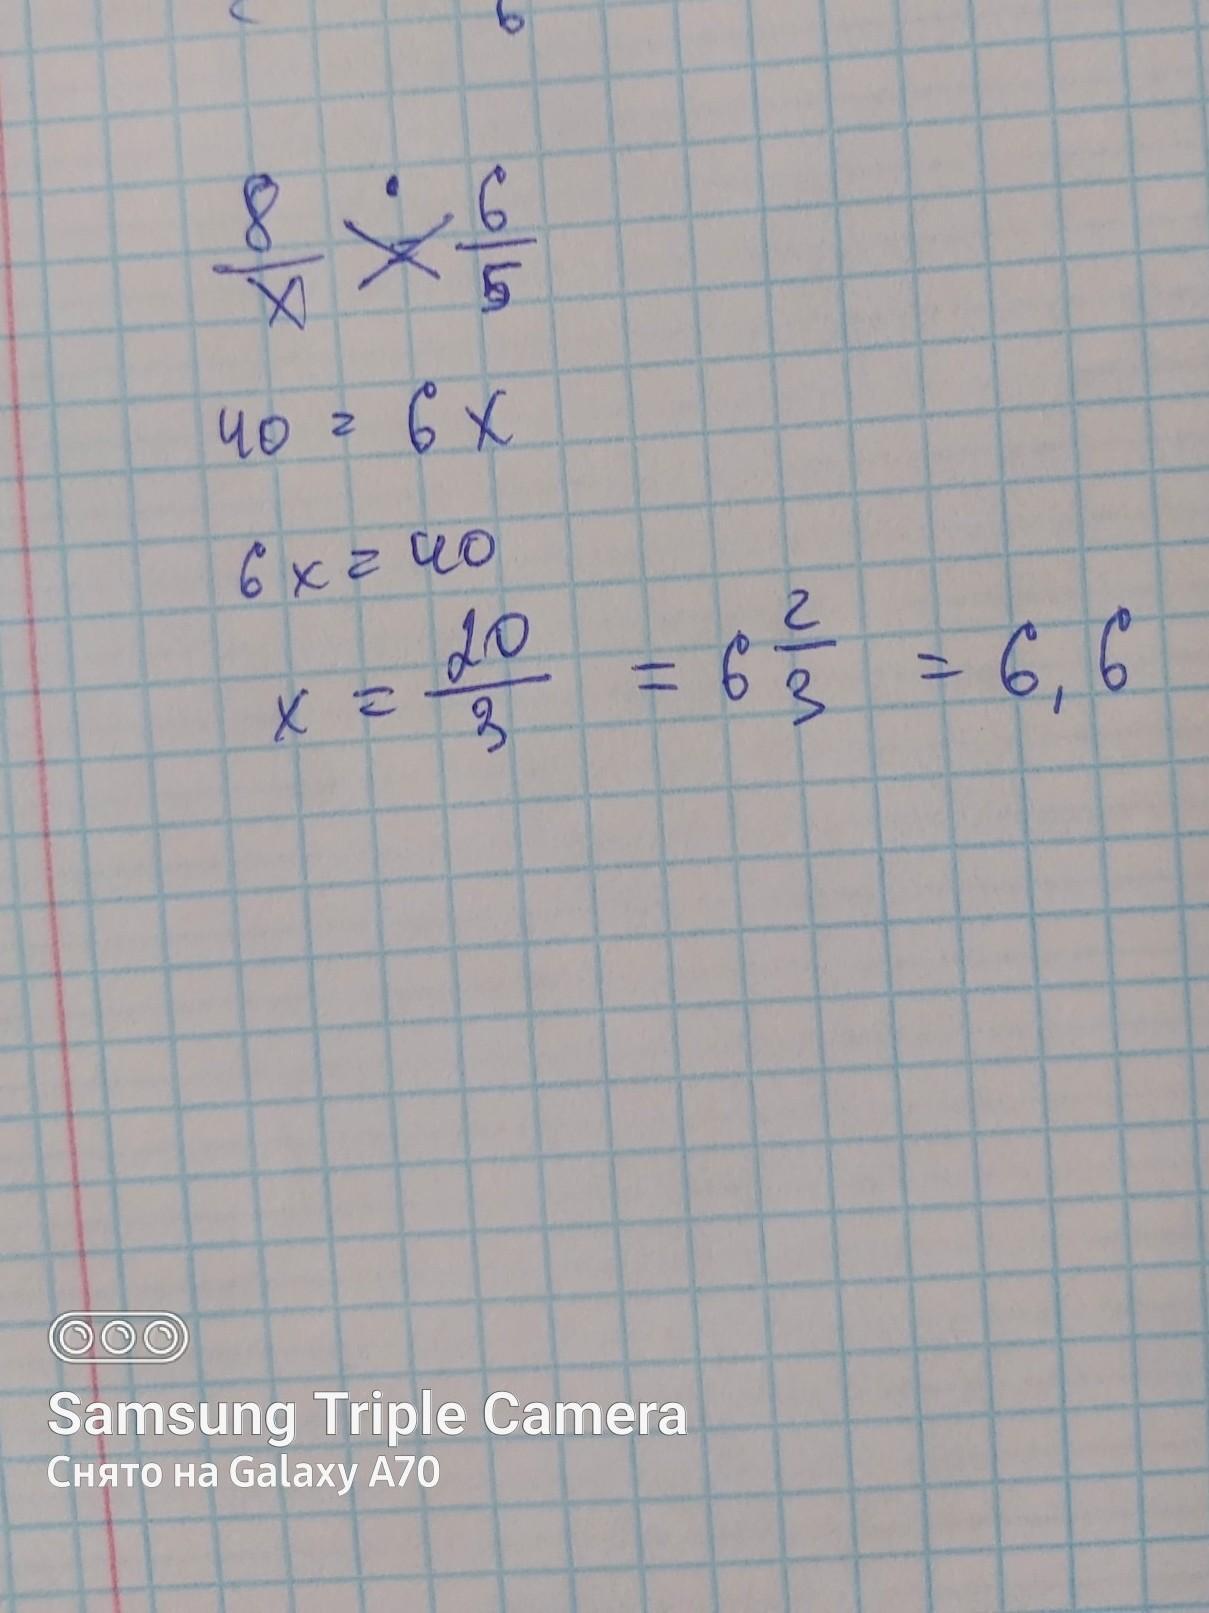 8/x 6/5
40 = 6x
6x = 40
x = 20/3 = 6 2/3 = 6,6
Samsung Triple Camera
Снято на Galaxy A70